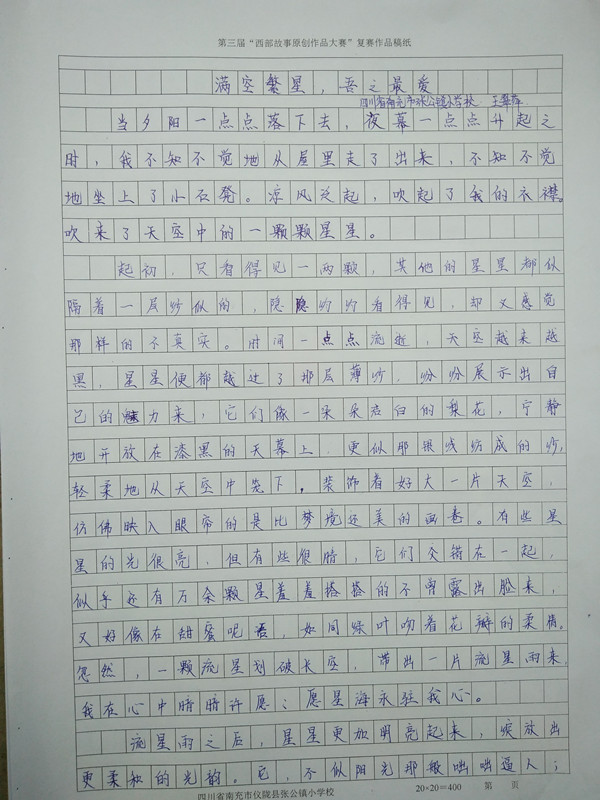 第三届“西部故事原创作品大赛”复赛作品稿纸
满空繁星，吾之最爱
四川省南充市张公镇小学校 王
当夕阳一点点落下去，夜幕一点点升起之
时，我不知不觉地从屋里走了出来，不知不觉
地坐上了小石凳。凉风泛起，吹起了我的衣襟。
吹来了天空中的一颗颗星星。
起初，只看得见一两颗，其他的星星都似
隔着一层纱似的，隐隐约约看得见，却又感觉
那样的不真实。时间一点点流逝，天空越来越
黑，星星便都越过了那层薄纱，纷纷展示出自
己的魅力来，它们像一朵朵洁白的梨花，宁静
地开放在漆黑的天幕上，更似那银线纺成的纱，
轻柔地从天空中笼下，装饰着好大一片天空，
仿佛映入眼帘的是比梦境还美的画卷。有些星
星的光很亮，但有些很暗，它们交错在一起，
似乎还有万余颗星羞羞搭搭的不曾露出脸来，
又好像在甜蜜呢语，如同绿叶吻着花瓣的柔情。
忽然，一颗流星划破长空，带出一片流星雨来，
我在心中暗暗许愿：愿星海永驻我心。
流星雨之后，星星更加明亮起来，绽放出
更柔和的光韵。它，不似阳光那般咄咄逼人；
四川省南充市仪陇县张公镇小学校
20×20=400 第 页